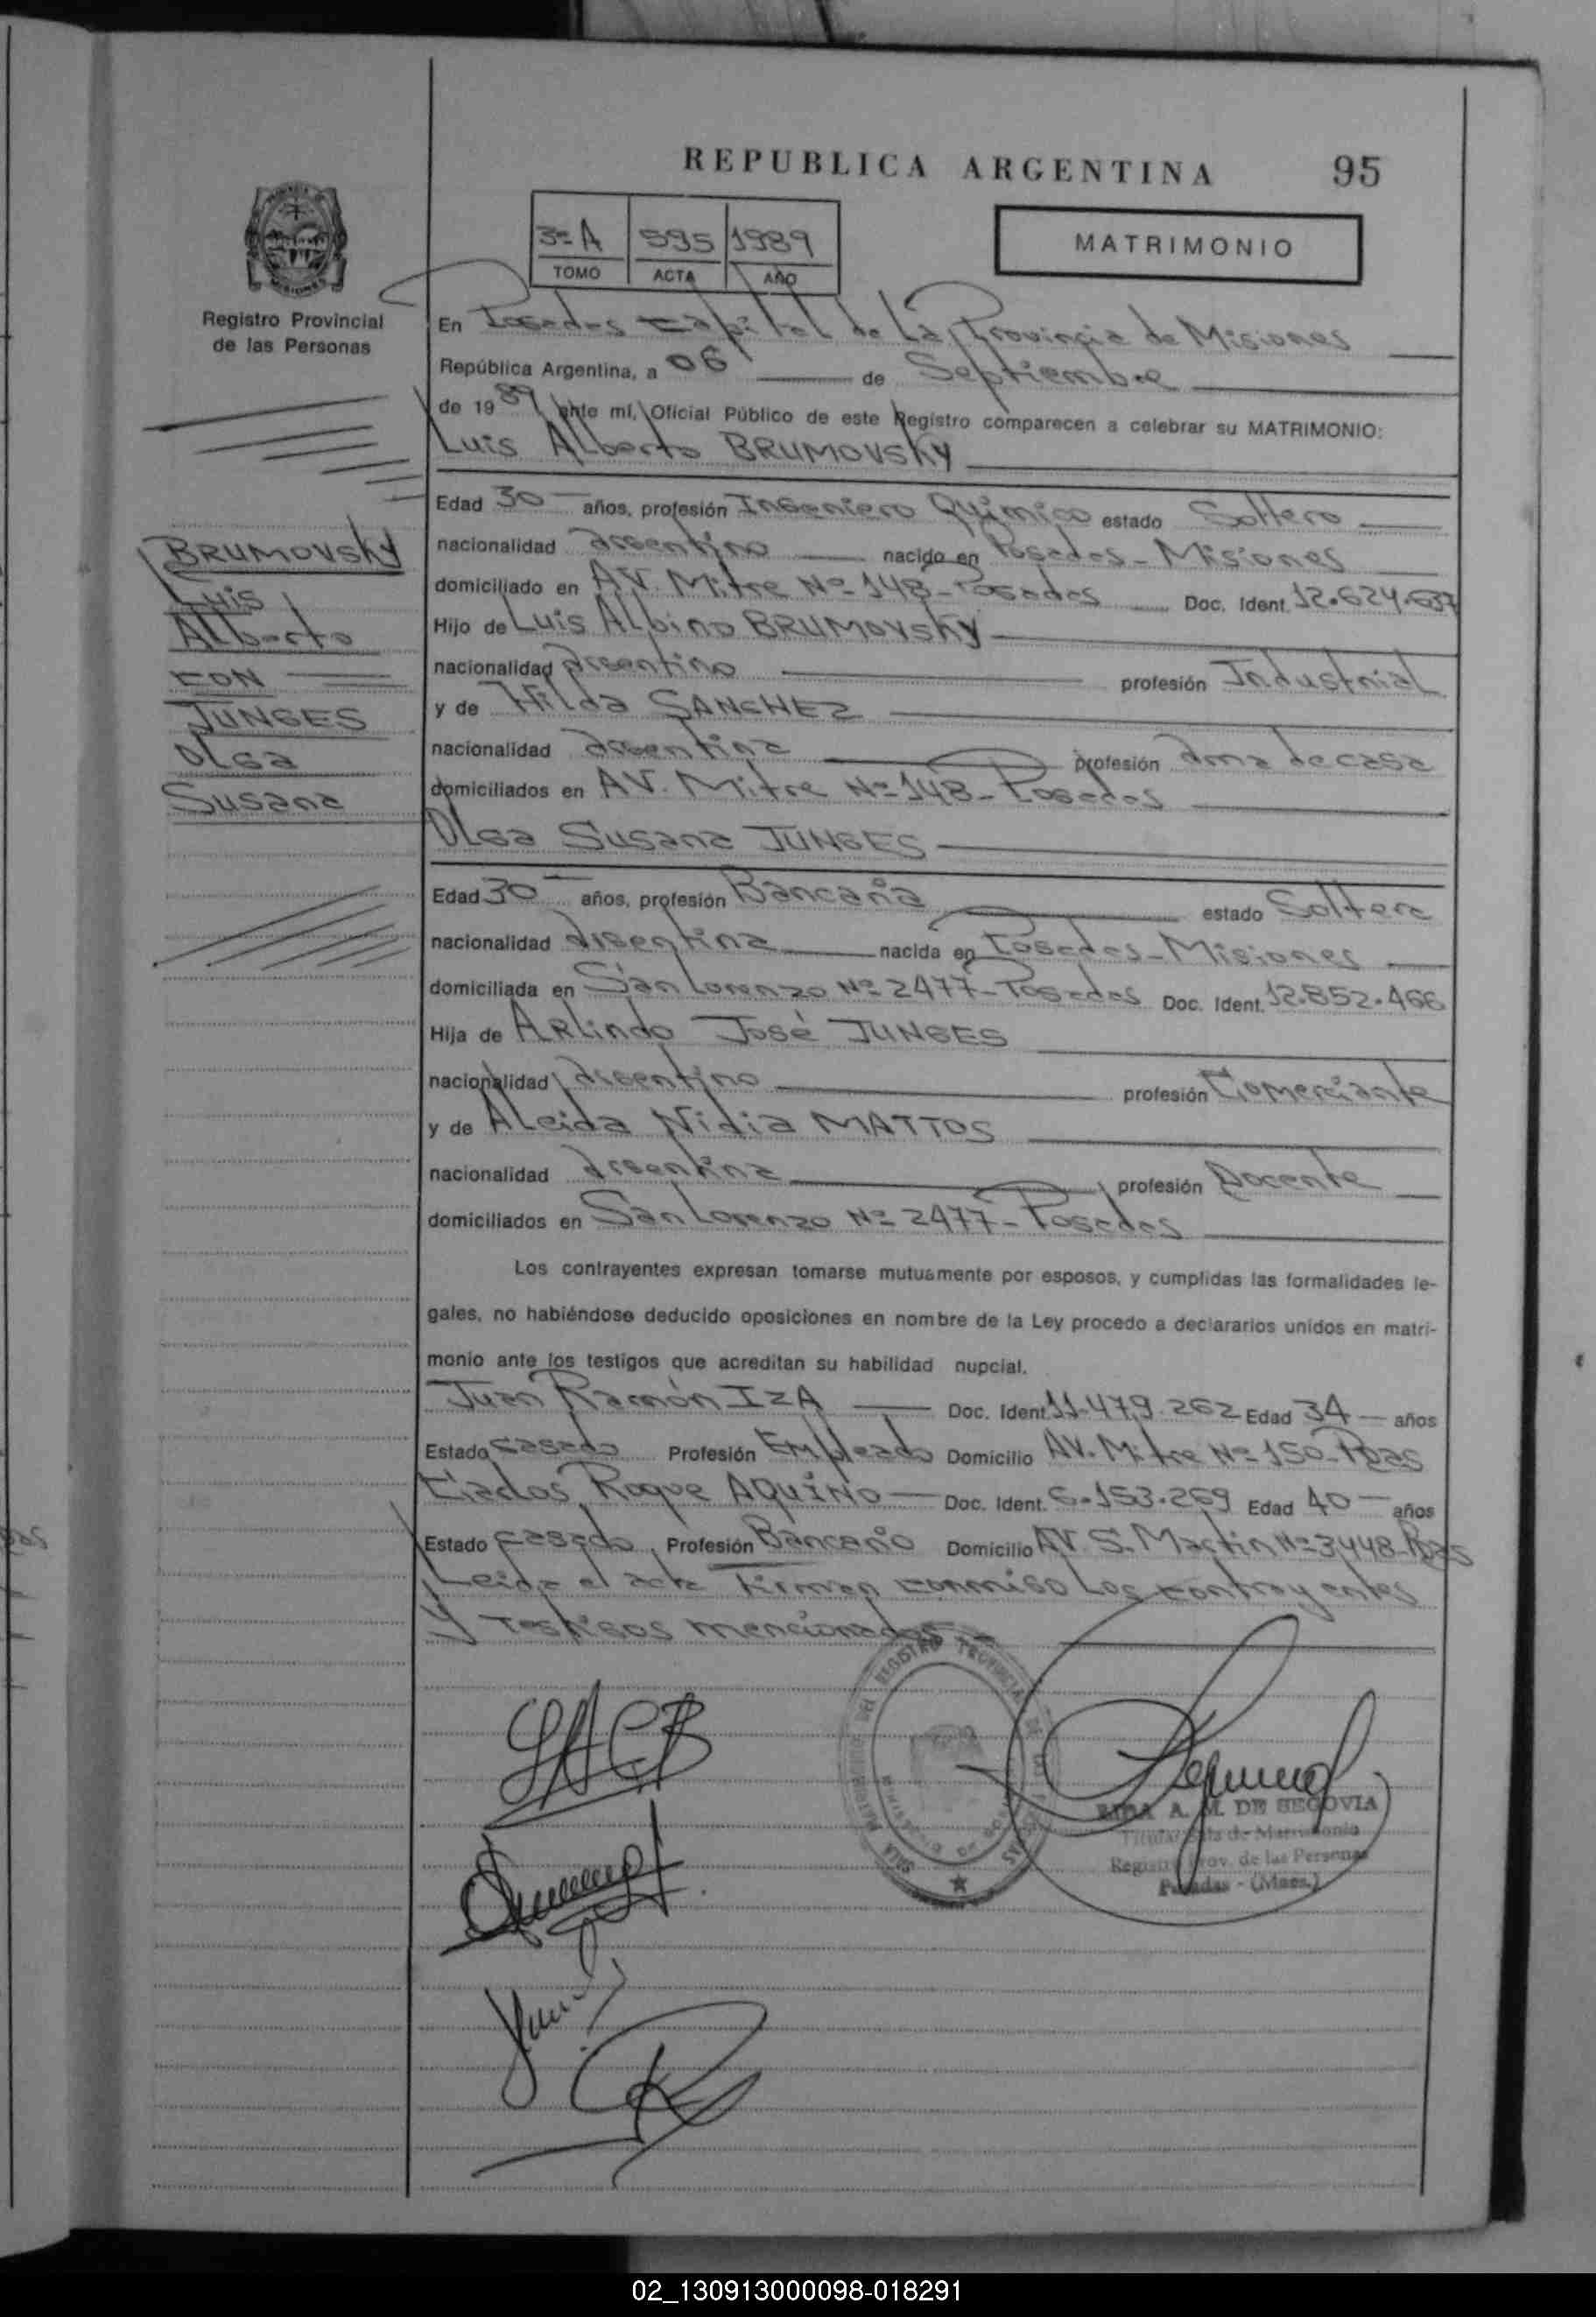 REPUBLICA ARGENTINA 95
3º A 595 1989
TOMO ACTA AÑO
MATRIMONIO
Registro Provincial
de las Personas
En Posadas Capital de La Provincia de Misiones
República Argentina, a 06 de Septiembre
de 1989 ante mí, Oficial Público de este Registro comparecen a celebrar su MATRIMONIO:
Luis Alberto BRUMOVSKY
Edad 30 años, profesión Ingeniero Químico estado Soltero
nacionalidad argentino nacido en Posadas - Misiones
domiciliado en AV. Mitre Nº 148 - Posadas Doc. Ident. 12.624.637
Hijo de Luis Albino BRUMOVSKY
nacionalidad argentino profesión Industrial
y de Hilda SANCHEZ
nacionalidad argentina profesión ama de casa
domiciliados en AV. Mitre Nº 148 - Posadas
Olga Susana JUNGES
Edad 30 años, profesión Bancaria estado Soltera
nacionalidad argentina nacida en Posadas - Misiones
domiciliada en San Lorenzo Nº 2477 - Posadas Doc. Ident. 12.852.466
Hija de ARlindo José JUNGES
nacionalidad argentino profesión Comerciante
y de ALeida Nidia MATTOS
nacionalidad argentina profesión Docente
domiciliados en San Lorenzo Nº 2477 - Posadas
Los contrayentes expresan tomarse mutuamente por esposos, y cumplidas las formalidades le-
gales, no habiéndose deducido oposiciones en nombre de la Ley procedo a declararlos unidos en matri-
monio ante los testigos que acreditan su habilidad nupcial.
Juan Ramón IZA Doc. Ident 11.479.262 Edad 34 años
Estado casado Profesión Empleado Domicilio AV. Mitre Nº 150 - Pdas
Carlos Roque AQUINO Doc. Ident. 6.153.269 Edad 40 años
Estado casado Profesión Bancario Domicilio AV. S. Martin Nº 3448 - Pdas
Leida el acta Firman conmigo Los contrayentes
y Testigos mencionados
BRUMOVSKY
Luis
Alberto
CON
JUNGES
OLga
Susana
SALA MATRIMONIOS DEL REGISTRO PROVINCIAL DE LAS PERSONAS
A. M. DE SEGOVIA
Titular Sala de Matrimonio
Registro Prov. de las Personas
Posadas - (Mnes.)
02_130913000098-018291